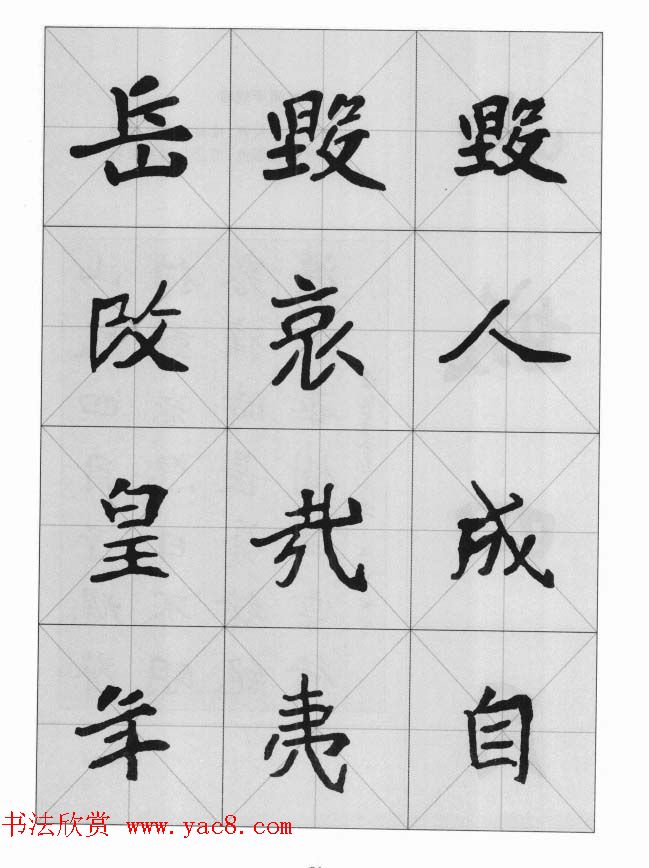 毀人成自
毀哀哉
岳改皇年
书法欣赏 www.yac8.com